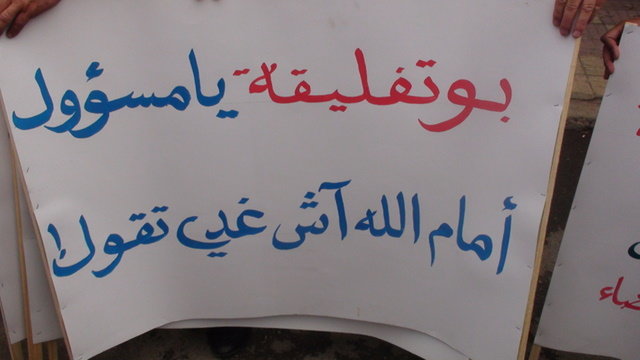 بوتفليقة يا مسؤول
أمام الله آش غدي تقول!
ضاء